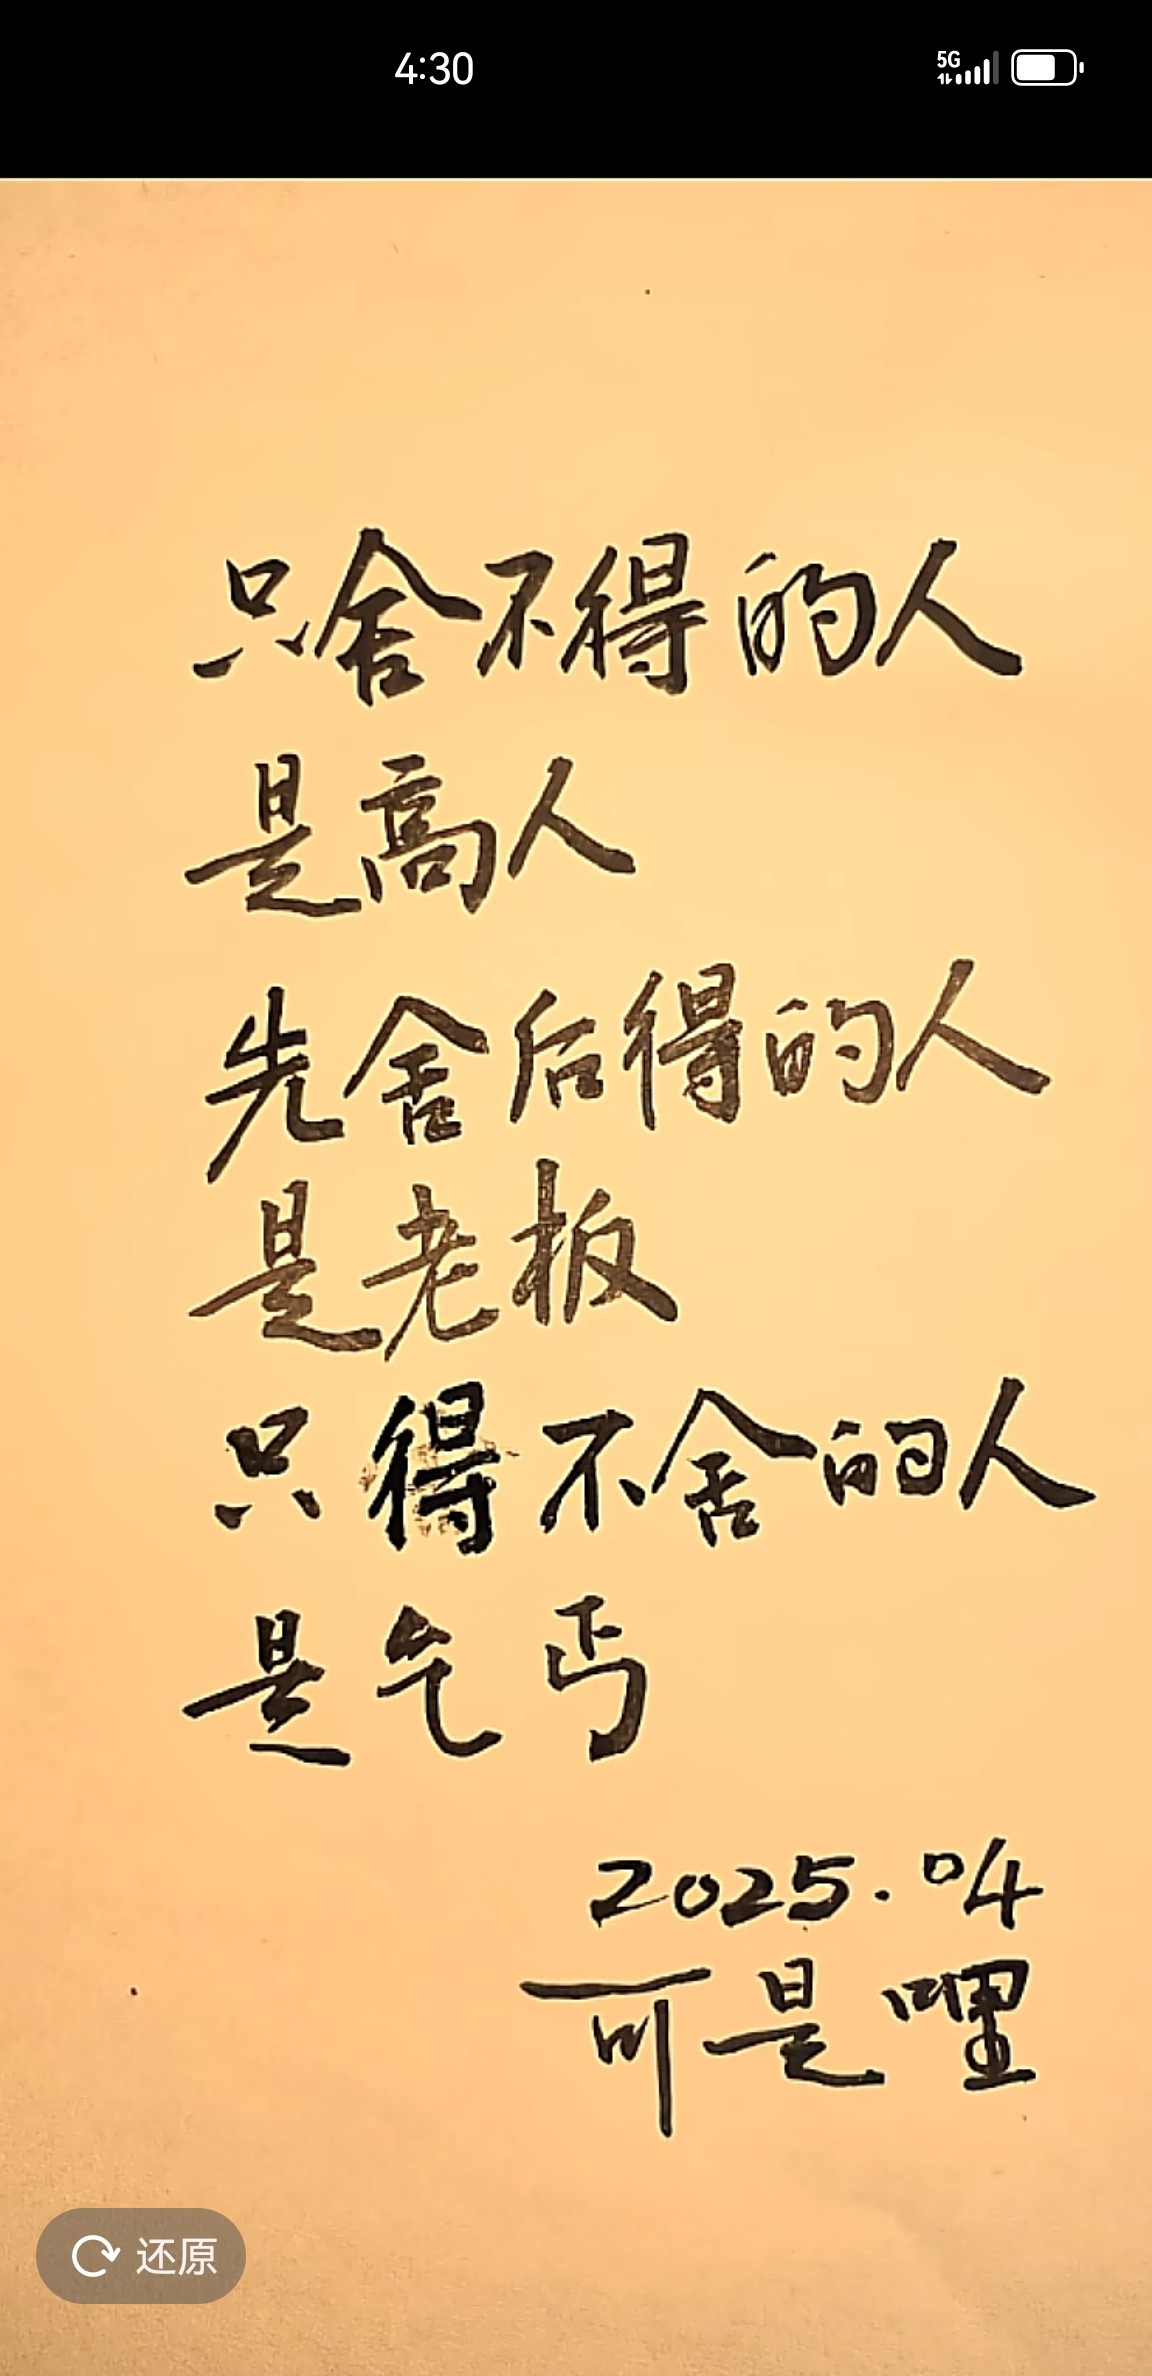 4:30
5G
只舍不得的人
是高人
先舍后得的人
是老板
只得不舍的人
是乞丐
2025.04
可是哩
还原